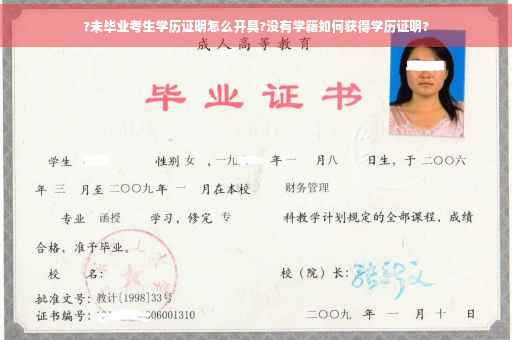 ?未毕业考生学历证明怎么开具?没有学籍如何获得学历证明?
成人高等教育
毕业证书
学生 性别 女 , 一九 年 一 月八 日生,于 二〇〇六
年 三 月至 二〇〇九 年 一 月在本校 财务管理
专业 函授 学习,修完 专 科教学计划规定的全部课程,成绩
合格,准予毕业。
校 名: 校(院)长:
批准文号: 教计[1998]33号
证书编号: 006001310 二〇〇九 年 一 月 十 日